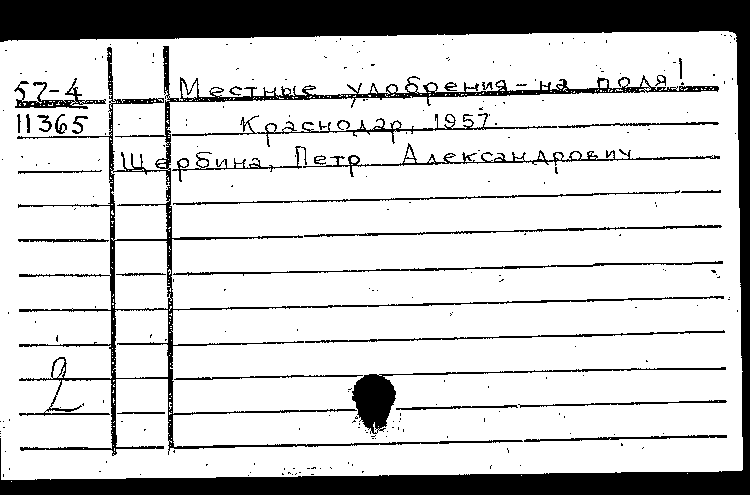 57-4 Местные удобрения - на поля!
11365 Краснодар, 1957.
Щербина, Петр Александрович
2